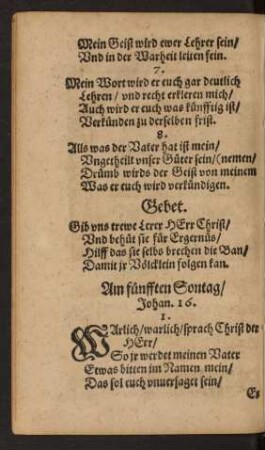 Mein Geist wird ewer Lehrer sein/
Vnd in der Warheit leiten fein.
7.
Mein Wort wird er euch gar deutlich
Lehren/ vnd recht erkleren mich/
Auch wird er euch was künfftig ist/
Verkünden zu derselben frist.
8.
Alls was der Vater hat ist mein/
Vngetheilt vnser Güter sein/ (nemen/
Drümb wirds der Geist von meinem
Was er euch wird verkündigen.
Gebet.
Gib vns trewe Lerer HErr Christ/
Vnd behüt sie für Ergernüs/
Hilff das sie selbs brechen die Ban/
Damit jr Völcklein folgen kan.
Am fünfften Sontag/
Johan. 16.
1.
WArlich/ warlich/ sprach Christ der
HErr/
So jr werdet meinen Vater
Etwas bitten im Namen mein/
Das sol euch vnuersaget sein/
Er